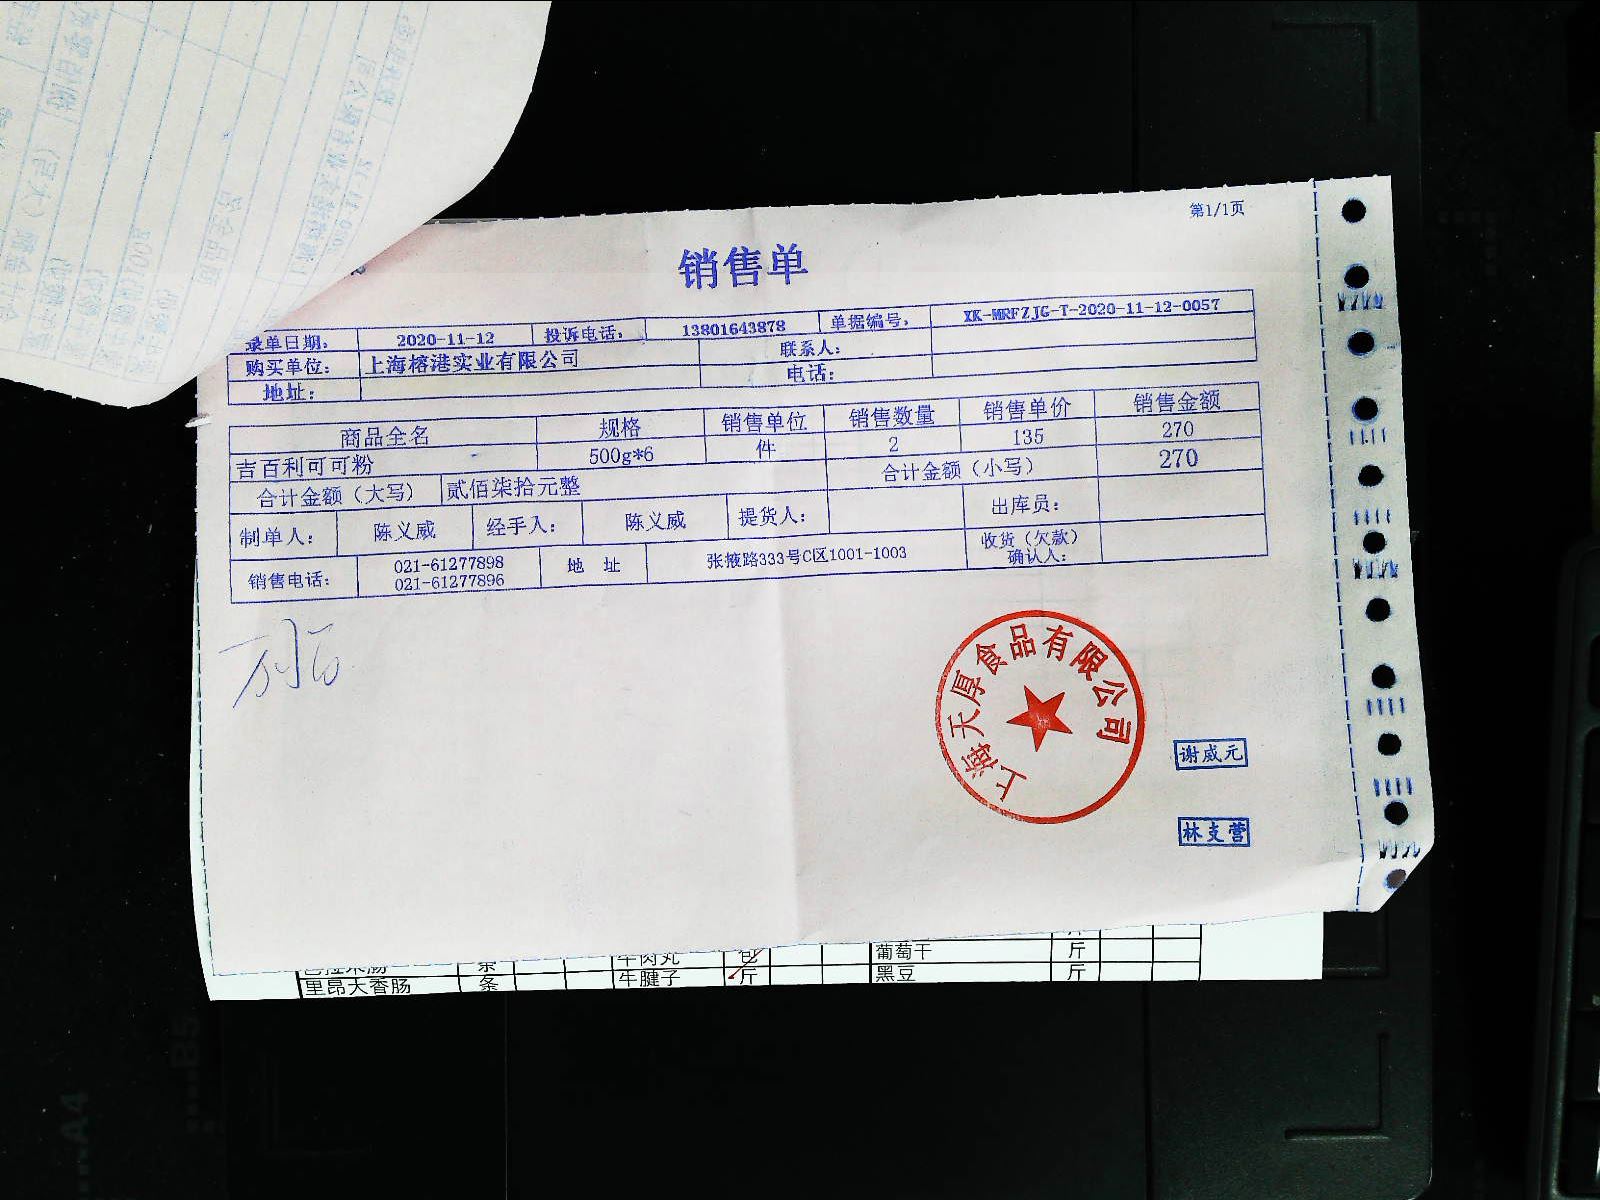 第1/1页
销售单
录单日期: 2020-11-12 投诉电话: 13801643878 单据编号: XK-MRFZJG-T-2020-11-12-0057
购买单位: 上海榕港实业有限公司 联系人:
地址: 电话:
商品全名 规格 销售单位 销售数量 销售单价 销售金额
吉百利可可粉 500g*6 件 2 135 270
合计金额（大写） 贰佰柒拾元整 合计金额（小写） 270
制单人: 陈义威 经手人: 陈义威 提货人: 出库员:
销售电话: 021-61277898 地 址 张掖路333号C区1001-1003 收货（欠款）
021-61277896 确认人:
上海天厚食品有限公司
谢威元
林支营
牛肉丸 包 葡萄干 斤
里昂大香肠 条 牛腱子 斤 黑豆 斤
B5
A4